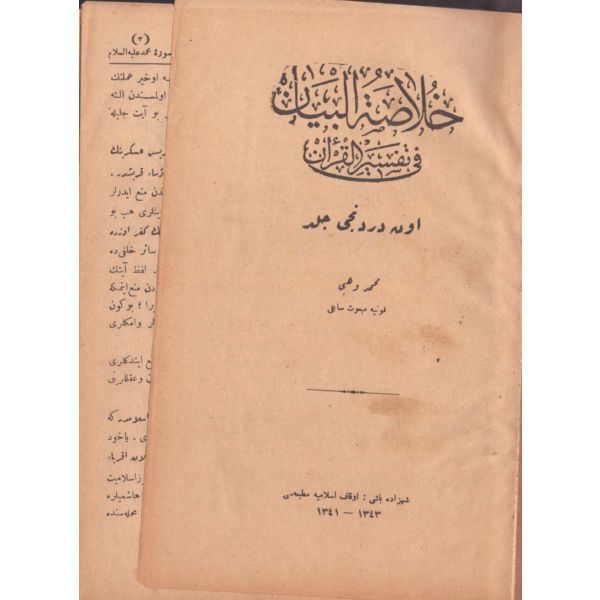 خلاصة البيان
فى تفسير القرآن
اون دردنجى جلد
محمد وهبى
قونيه مبعوث سابقى
شهزاده باشى : اوقاف اسلاميه مطبعه‌سى
١٣٤٣ — ١٣٤١
(٣)
سورۀ محمد عليه السلام
اوخير عملنك
اولمسندن البته
بو آيت جليله
عسكرينك
قريشدر .
منع ايدرلر
هپ بو
كفر اوزره
سائر خلقى ده
لفظ آيتك
منع ايتمكه
بوكون
وامكارى
ايتدكلرى
وعقللرينى
كه
ياخود
اقرباء
هاشميلره
محله‌سنده